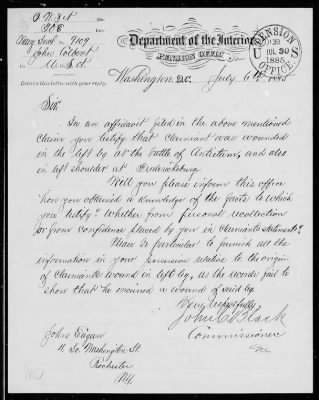 O.W. Div
John Colbert
Department of the Interior,
PENSION OFFICE
PENSIONS U.S. OFFICE
JUL 30
1885
Return this letter with your reply.
Washington, D.C. July 6th 1885
Sir
In an affidavit filed in the above mentioned
claim you testify that claimant was wounded
in the left leg at the battle of Antietam, and also
in left shoulder at Fredericksburg
Will you please inform this office
how you obtained a knowledge of the facts to which
you testify? Whether from personal recollection
or from confidence placed by you in claimants statements?
Please be particular to furnish all the
information in your possession relative to the origin
of claimants wound in left leg, as the records fail to
show that he received a wound of said leg.
Very respectfully
John C Black
Commissioner
John Eagan
11 So. Washington St.
Rochester
N.Y.